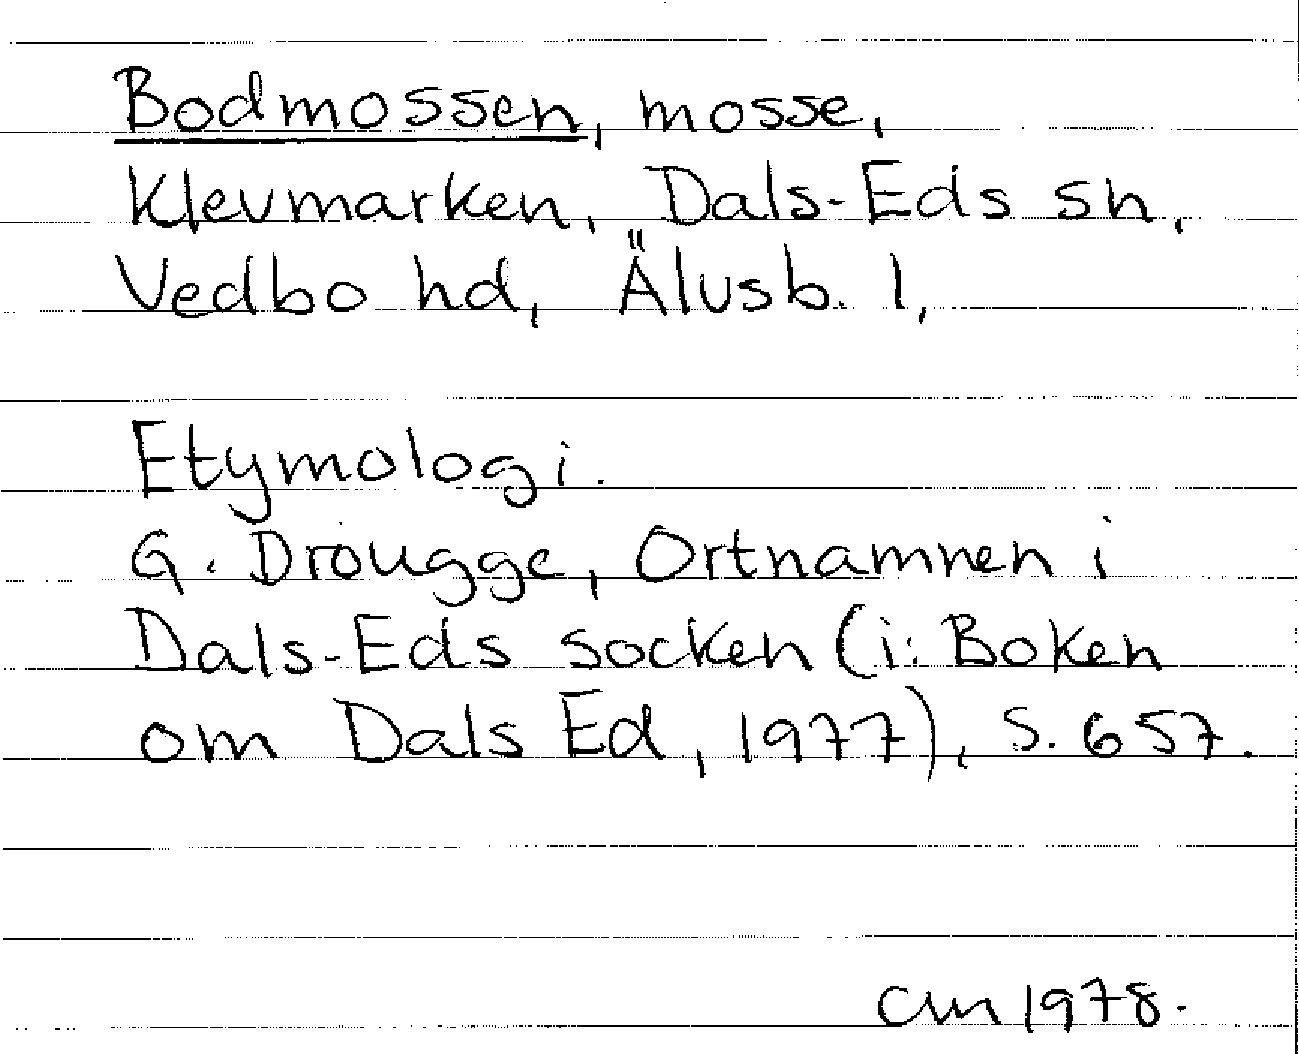 Bodmossen, mosse,
Klevmarken, Dals-Eds sn,
Vedbo hd, Älvsb. l,
Etymologi.
G. Drougge, Ortnamnen i
Dals-Eds socken (i: Boken
om Dals Ed, 1977), s. 657.
CM 1978.